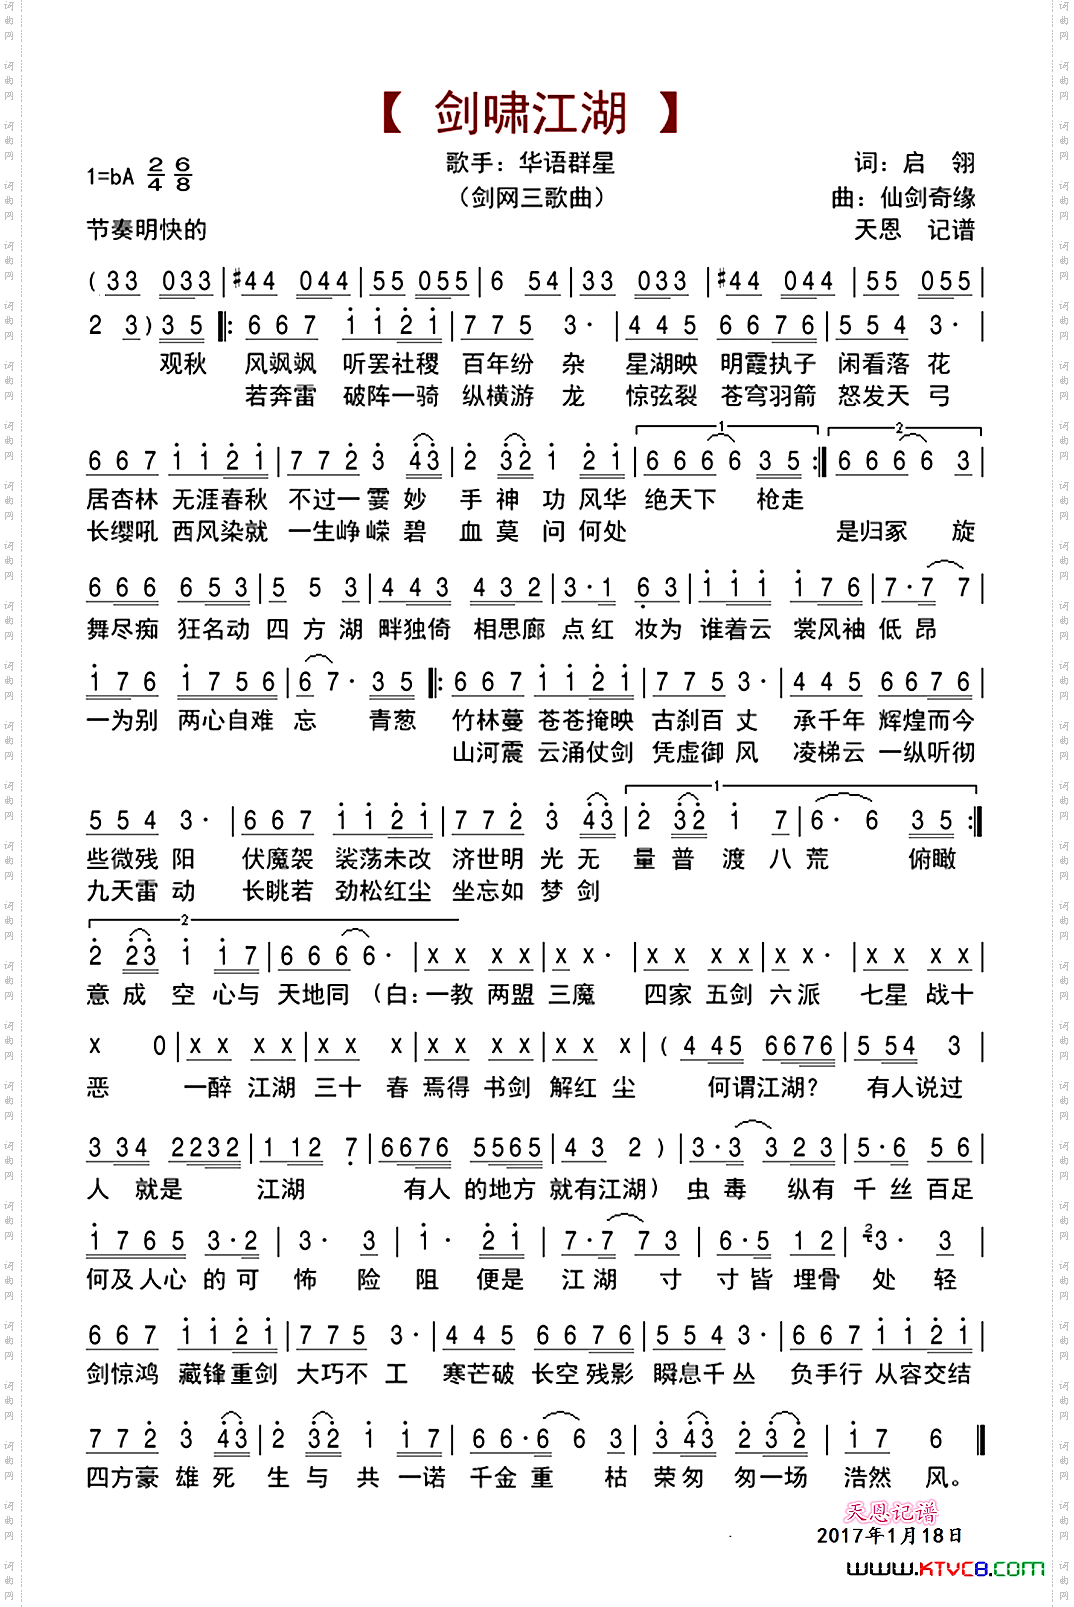 【 剑啸江湖 】
1=bA 2/4 6/8 歌手：华语群星 词：启 翎
（剑网三歌曲） 曲：仙剑奇缘
节奏明快的 天恩 记谱
( 33 033 | #44 044 | 55 055 | 6 54 | 33 033 | #44 044 | 55 055 |
2 3 ) 35 ‖: 667 1121 | 775 3· | 445 6676 | 554 3· |
观秋 风飒飒 听罢社稷 百年纷 杂 星湖映 明霞执子 闲看落 花
若奔雷 破阵一骑 纵横游 龙 惊弦裂 苍穹羽箭 怒发天 弓
1 2
667 1121 | 772 3 43 | 2 32 1 21 | 6666 35 :‖ 6666 3 |
居杏林 无涯春秋 不过一 霎 妙 手 神 功 风华 绝天下 枪走
长缨吼 西风染就 一生峥 嵘 碧 血 莫 问 何处 是归冢 旋
666 653 | 5 5 3 | 443 432 | 3·1 63 | 111 176 | 7·7 7 |
舞尽痴 狂名动 四 方 湖 畔独倚 相思廊 点 红 妆为 谁着云 裳风袖 低 昂
176 1756 | 67· 35 ‖: 667 1121 | 775 3· | 445 6676 |
一为别 两心自难 忘 青葱 竹林蔓 苍苍掩映 古刹百 丈 承千年 辉煌而今
山河震 云涌仗剑 凭虚御 风 凌梯云 一纵听彻
1
554 3· | 667 1121 | 772 3 43 | 2 32 1 7 | 6· 6 35 :‖
些微残 阳 伏魔袈 裟荡未改 济世明 光 无 量 普 渡 八 荒 俯瞰
九天雷 动 长眺若 劲松红尘 坐忘如 梦 剑
2
2 23 1 17 | 6666· | x x x x | x x· | x x x x | x x· | x x x x |
意 成 空 心与 天地同 （白：一教 两盟 三魔 四家 五剑 六派 七星 战十
x 0 | x x x x | x x x | x x x x | x x x | ( 445 6676 | 554 3 |
恶 一醉 江湖 三十 春 焉得 书剑 解红 尘 何谓江湖？ 有人说过
3 34 2232 | 1 12 7 | 6676 5565 | 43 2 ) | 3·3 323 | 5·6 56 |
人 就是 江湖 有人 的地方 就有江湖） 虫 毒 纵有 千 丝 百足
1765 3·2 | 3· 3 | 1· 21 | 7·7 73 | 6·5 12 | 2 3· 3 |
何及人心 的 可 怖 险 阻 便是 江 湖 寸 寸 皆 埋骨 处 轻
667 1121 | 775 3· | 445 6676 | 554 3· | 667 1121 |
剑惊鸿 藏锋重剑 大巧不 工 寒芒破 长空残影 瞬息千 丛 负手行 从容交结
772 3 43 | 2 32 1 17 | 66·6 6 3 | 3 43 2 32 | 17 6 ‖
四方豪 雄 死 生 与 共 一诺 千金 重 枯 荣匆 匆一场 浩然 风。
天恩记谱
2017年1月18日
WWW.KTVC8.COM